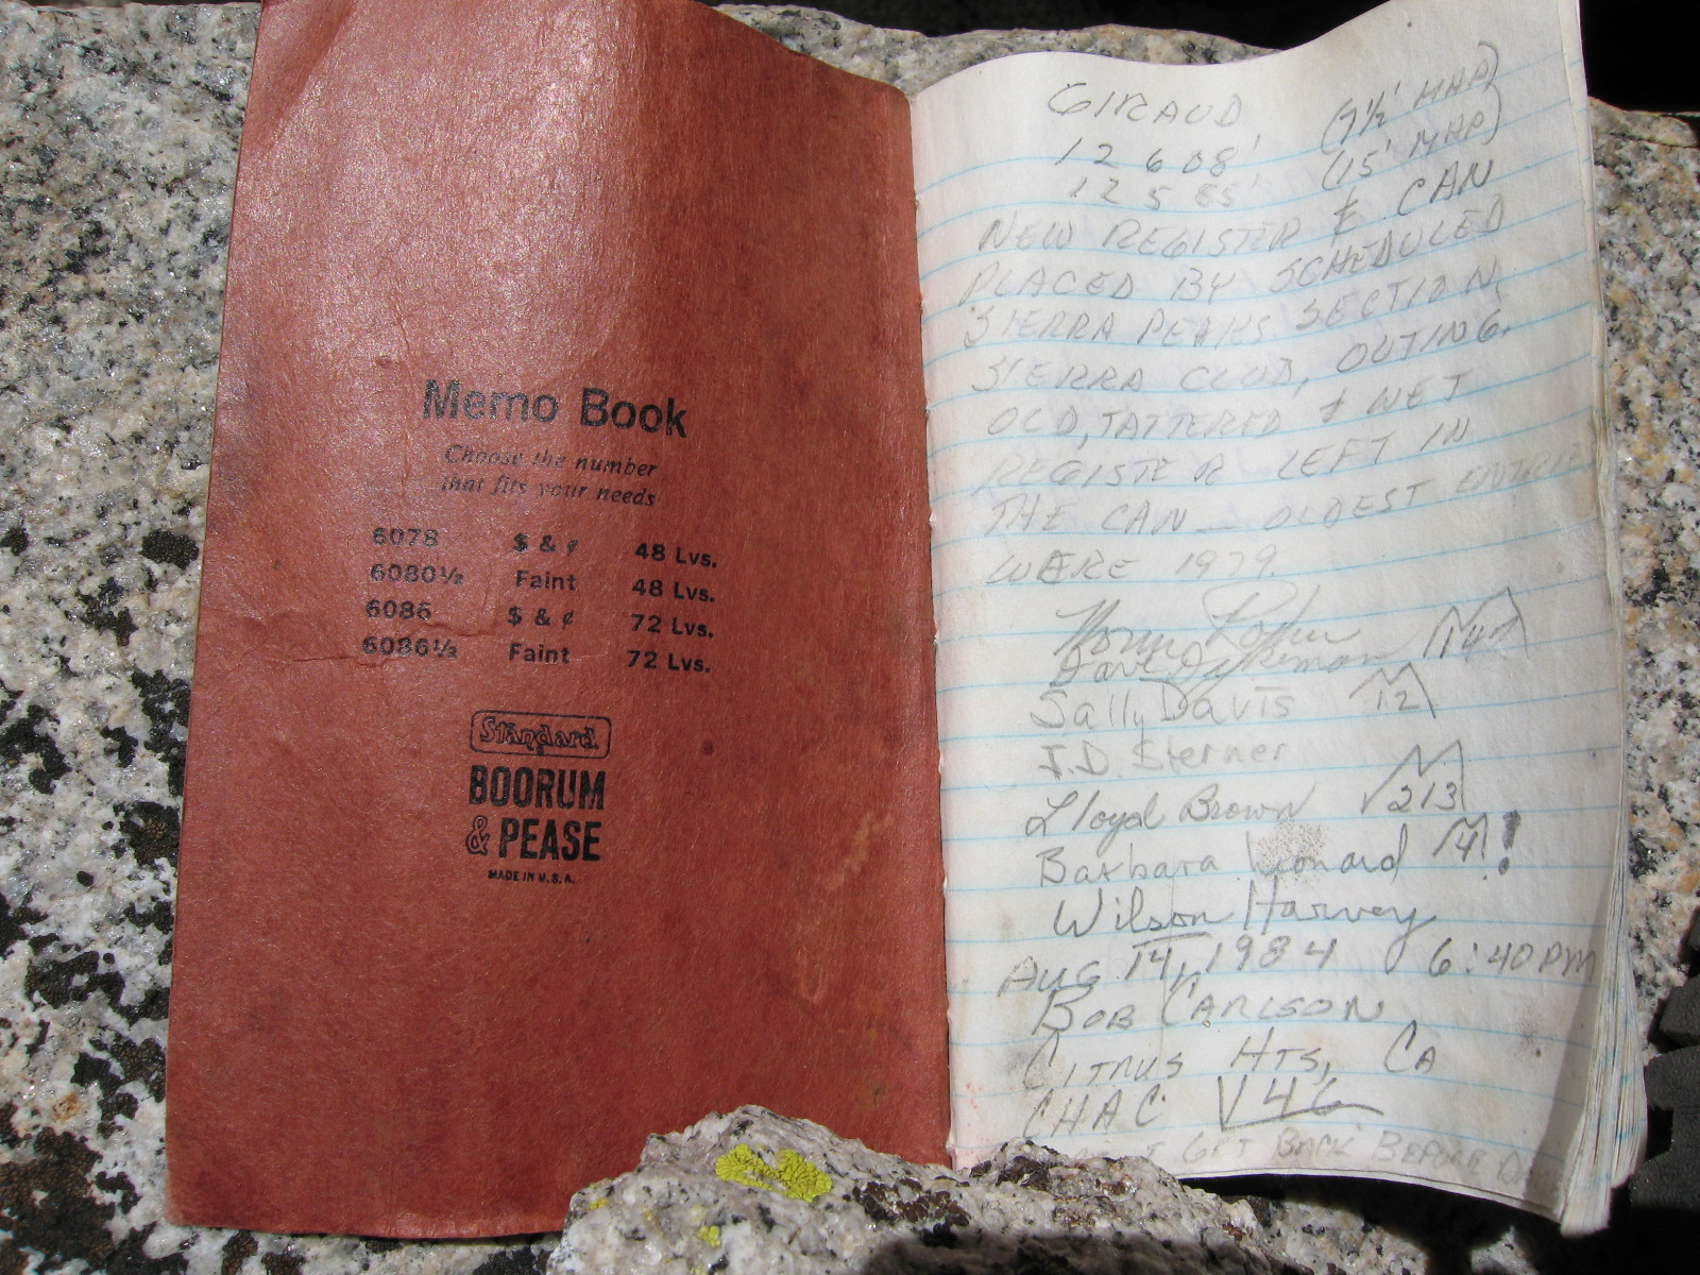 Memo Book
Choose the number
that fits your needs
6078 $ & ¢ 48 Lvs.
6080½ Faint 48 Lvs.
6086 $ & ¢ 72 Lvs.
6086½ Faint 72 Lvs.
Standard
BOORUM
& PEASE
MADE IN U.S.A.
GIRAUD
12 608' (7½' MAP)
12 585' (15' MAP)
NEW REGISTER & CAN
PLACED BY SCHEDULED
SIERRA PEAKS SECTION,
SIERRA CLUB, OUTING.
OLD, TATTERED & WET
REGISTER LEFT IN
THE CAN — OLDEST
WERE 1979.
Norm
Dave Dykeman
Sally Davis 12
J.D. Sterner
Lloyd Brown 213
Barbara 14!
Wilson Harvey
AUG 14, 1984 6:40 PM
BOB CARLSON
CITRUS HTS, CA
CHAC V46
I GET BACK BEFORE